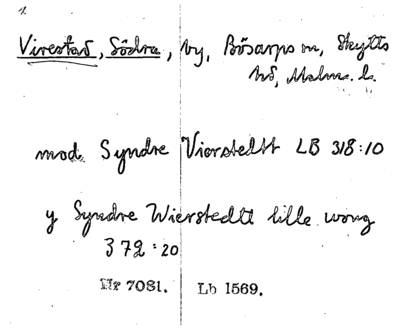 1.
Virestad, Södra, by, Bösarps sn, Skytts
hd, Malm. l.
mod Syndre Vierstedtt LB 318:10
y Syndre Wierstedtt lille wong
372:20
Nr 7081. Lb 1569.